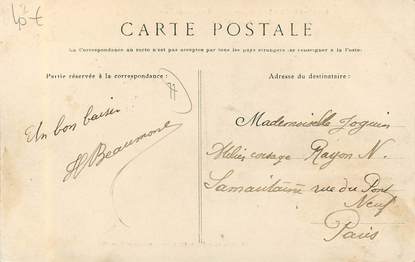 40 €
CARTE POSTALE
La Correspondance au recto n'est pas acceptée par tous les pays étrangers (Se renseigner à la Poste).
Partie réservée à la correspondance :
Adresse du destinataire :
Un bon baiser
H Beaumont
Mademoiselle Joguin
corsage Rayon N.
Samaritaine rue du Pont
Neuf
Paris